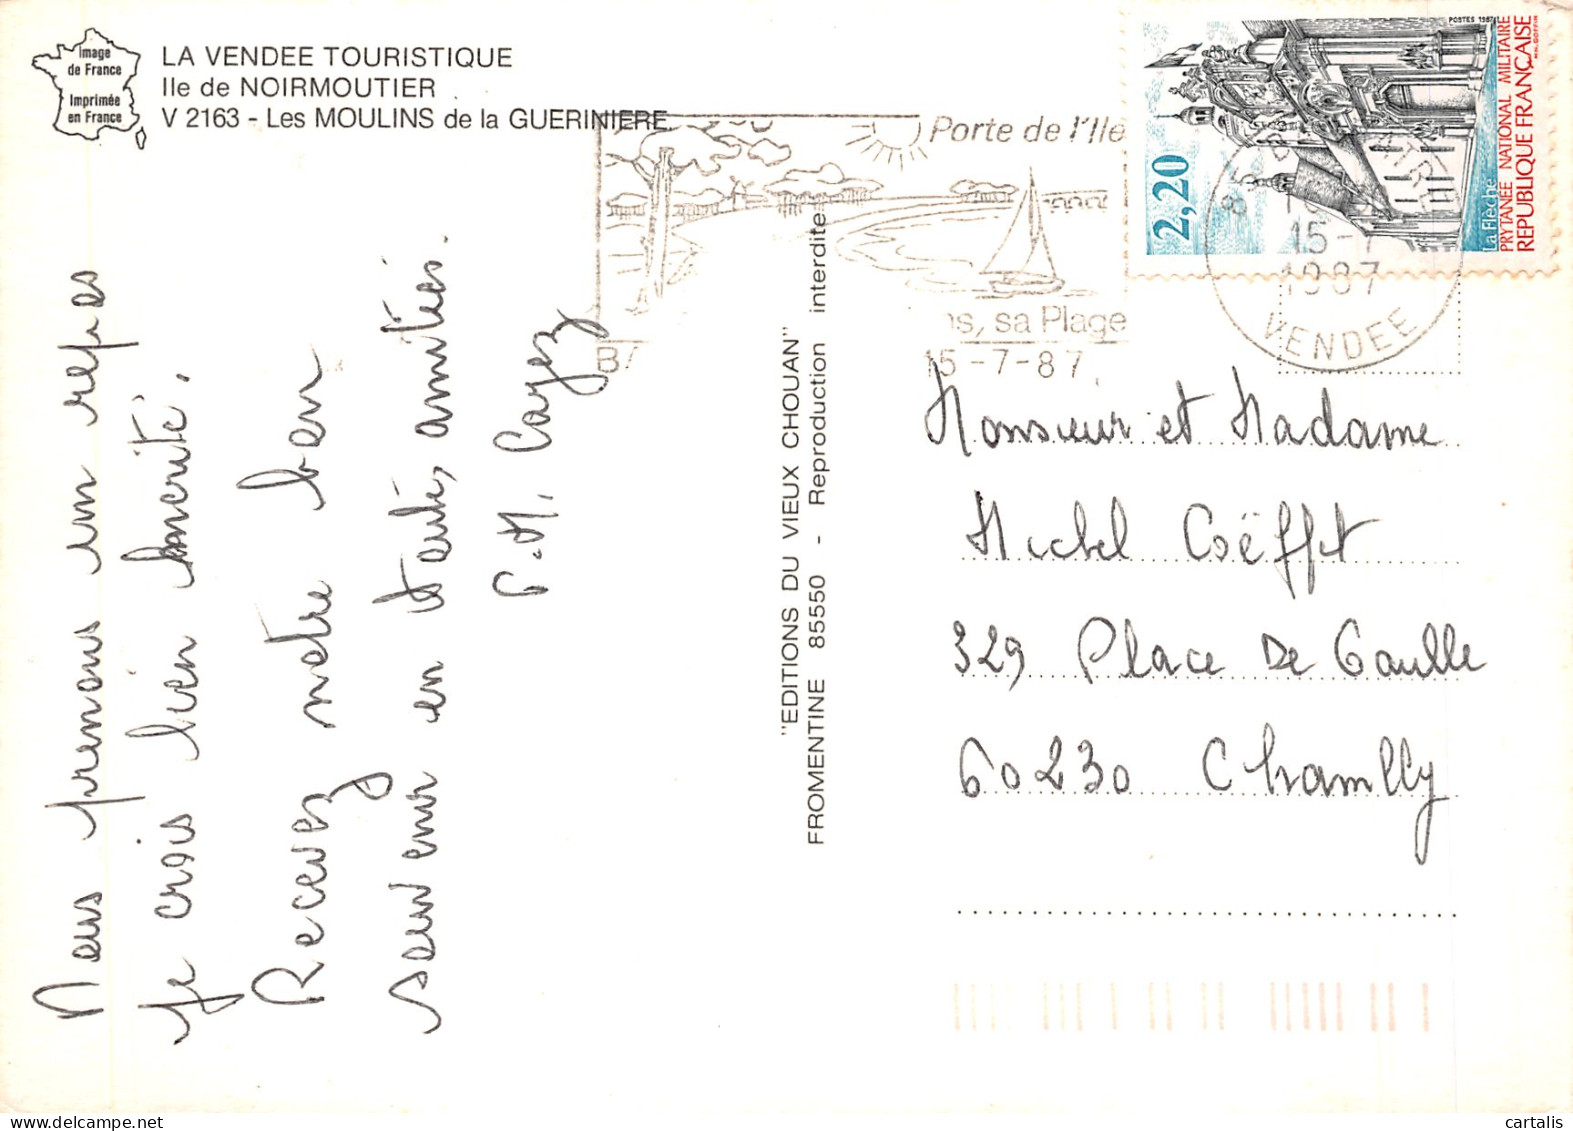 Image
de France
Imprimée
en France
LA VENDEE TOURISTIQUE
Ile de NOIRMOUTIER
V 2163 - Les MOULINS de la GUERINIERE
Nous prenons un repos
je crois bien mérité.
Recevez notre bon
souvenir en toute amitiés.
Cayez
"EDITIONS DU VIEUX CHOUAN"
FROMENTINE 85550 - Reproduction interdite
Porte de l'Ile
ns, sa Plage
15-7-87
15-7
1987
VENDEE
POSTES 1987
2,20
La Flèche
PRYTANÉE NATIONAL MILITAIRE
REPUBLIQUE FRANÇAISE
Monsieur et Madame
Michel Coëffet
329 Place De Gaulle
60230 Chambly
cartalis.com